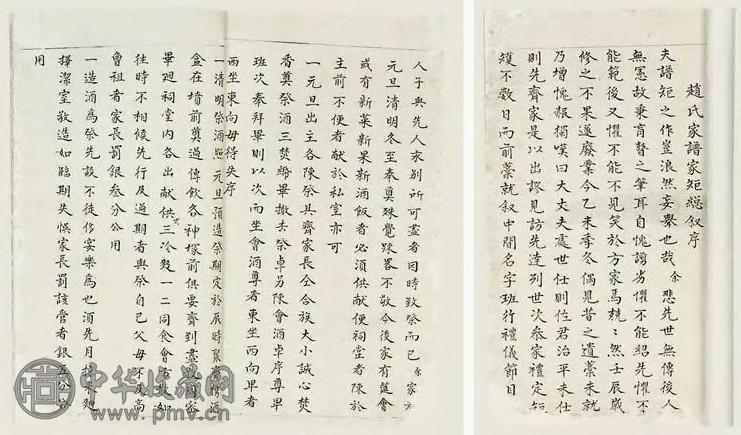 趙氏家譜家矩總叙序
夫譜矩之作豈浪然妄舉也哉余悲先世無傳後人
無憲故秉肓瞽之筆耳自愧謭劣惧不能紹先惧不
能範後又惧不能不見笑於方家焉兢〻然壬辰歲
修之不果遂廢業今乙未季冬偶見昔之遺藁未就
乃增愧赧獨嘆曰大丈夫處世仕則佐君治平未仕
則先齊家是以出諮見訪先達列世次參家禮定矩
矱不數日而前藁就叙中間名字班行禮儀節目
人子與先人永别所可盡者因時致祭而已余家方
元旦清明冬至奉奠殊覺踈畧不敬今後家有筵會
或有新菜新果新酒飯者必須供献便祠堂者陳於
主前不便者献於私室亦可
一元旦出主各陳祭具齊家長仝合族大小誠心焚
香奠祭酒三焚楮畢撤去祭卓另陳會酒卓序尊卑
班次奉拜畢則以次而坐會酒尊者東坐西向卑者
西坐東向毋得失序
一清明祭酒照元旦預造祭期定於辰時聚齊酒
盒在墳前奠過傳飲各神塚前俱要齊到盡
畢廻祠堂内各出献供三冷一二同食會如
往時不相候先行及過期者與祭自己父母不及高
曾祖者家長罰銀叁分公用
一造酒為祭先設不徒侈宴樂為也須先月麯
擇潔室敬造如臨期失悞家長罰該管者銀五分公
用
中华收藏网
www.pmv.cn